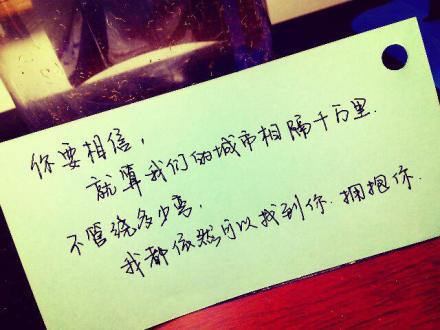 你要相信，
就算我们的城市相隔千万里.
不管绕多少弯，
我都依然可以找到你.拥抱你.